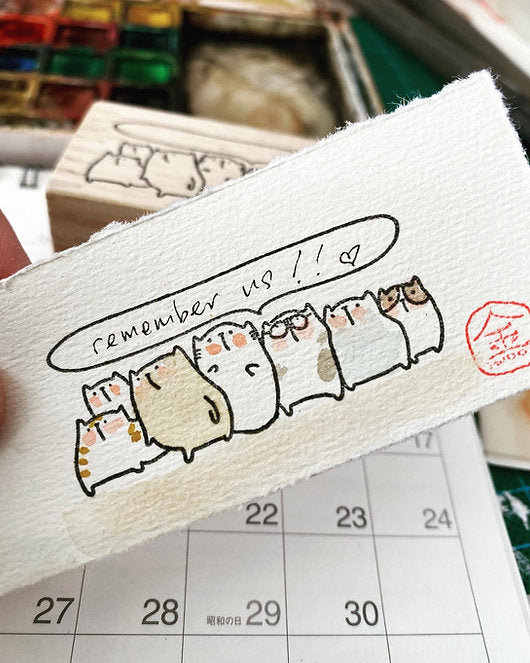 remember us!! ♡
17
22 23 24
27 28 昭和の日 29 30